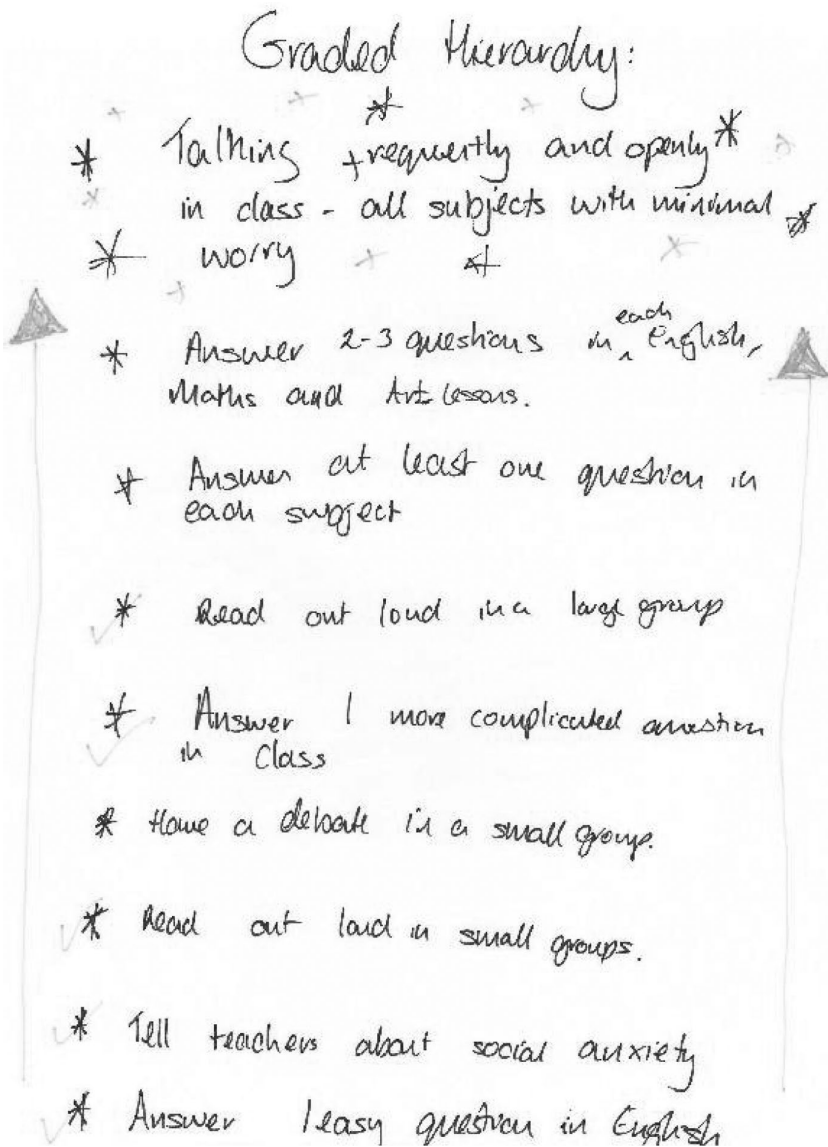 Graded Hierarchy:
* Talking frequently and openly
in class - all subjects with minimal
worry
* Answer 2-3 questions in each English,
Maths and Art lessons.
* Answer at least one question in
each subject
* Read out loud in a large group
* Answer 1 more complicated question
in class
* Have a debate in a small group.
* Read out loud in small groups.
* Tell teachers about social anxiety
* Answer 1 easy question in English